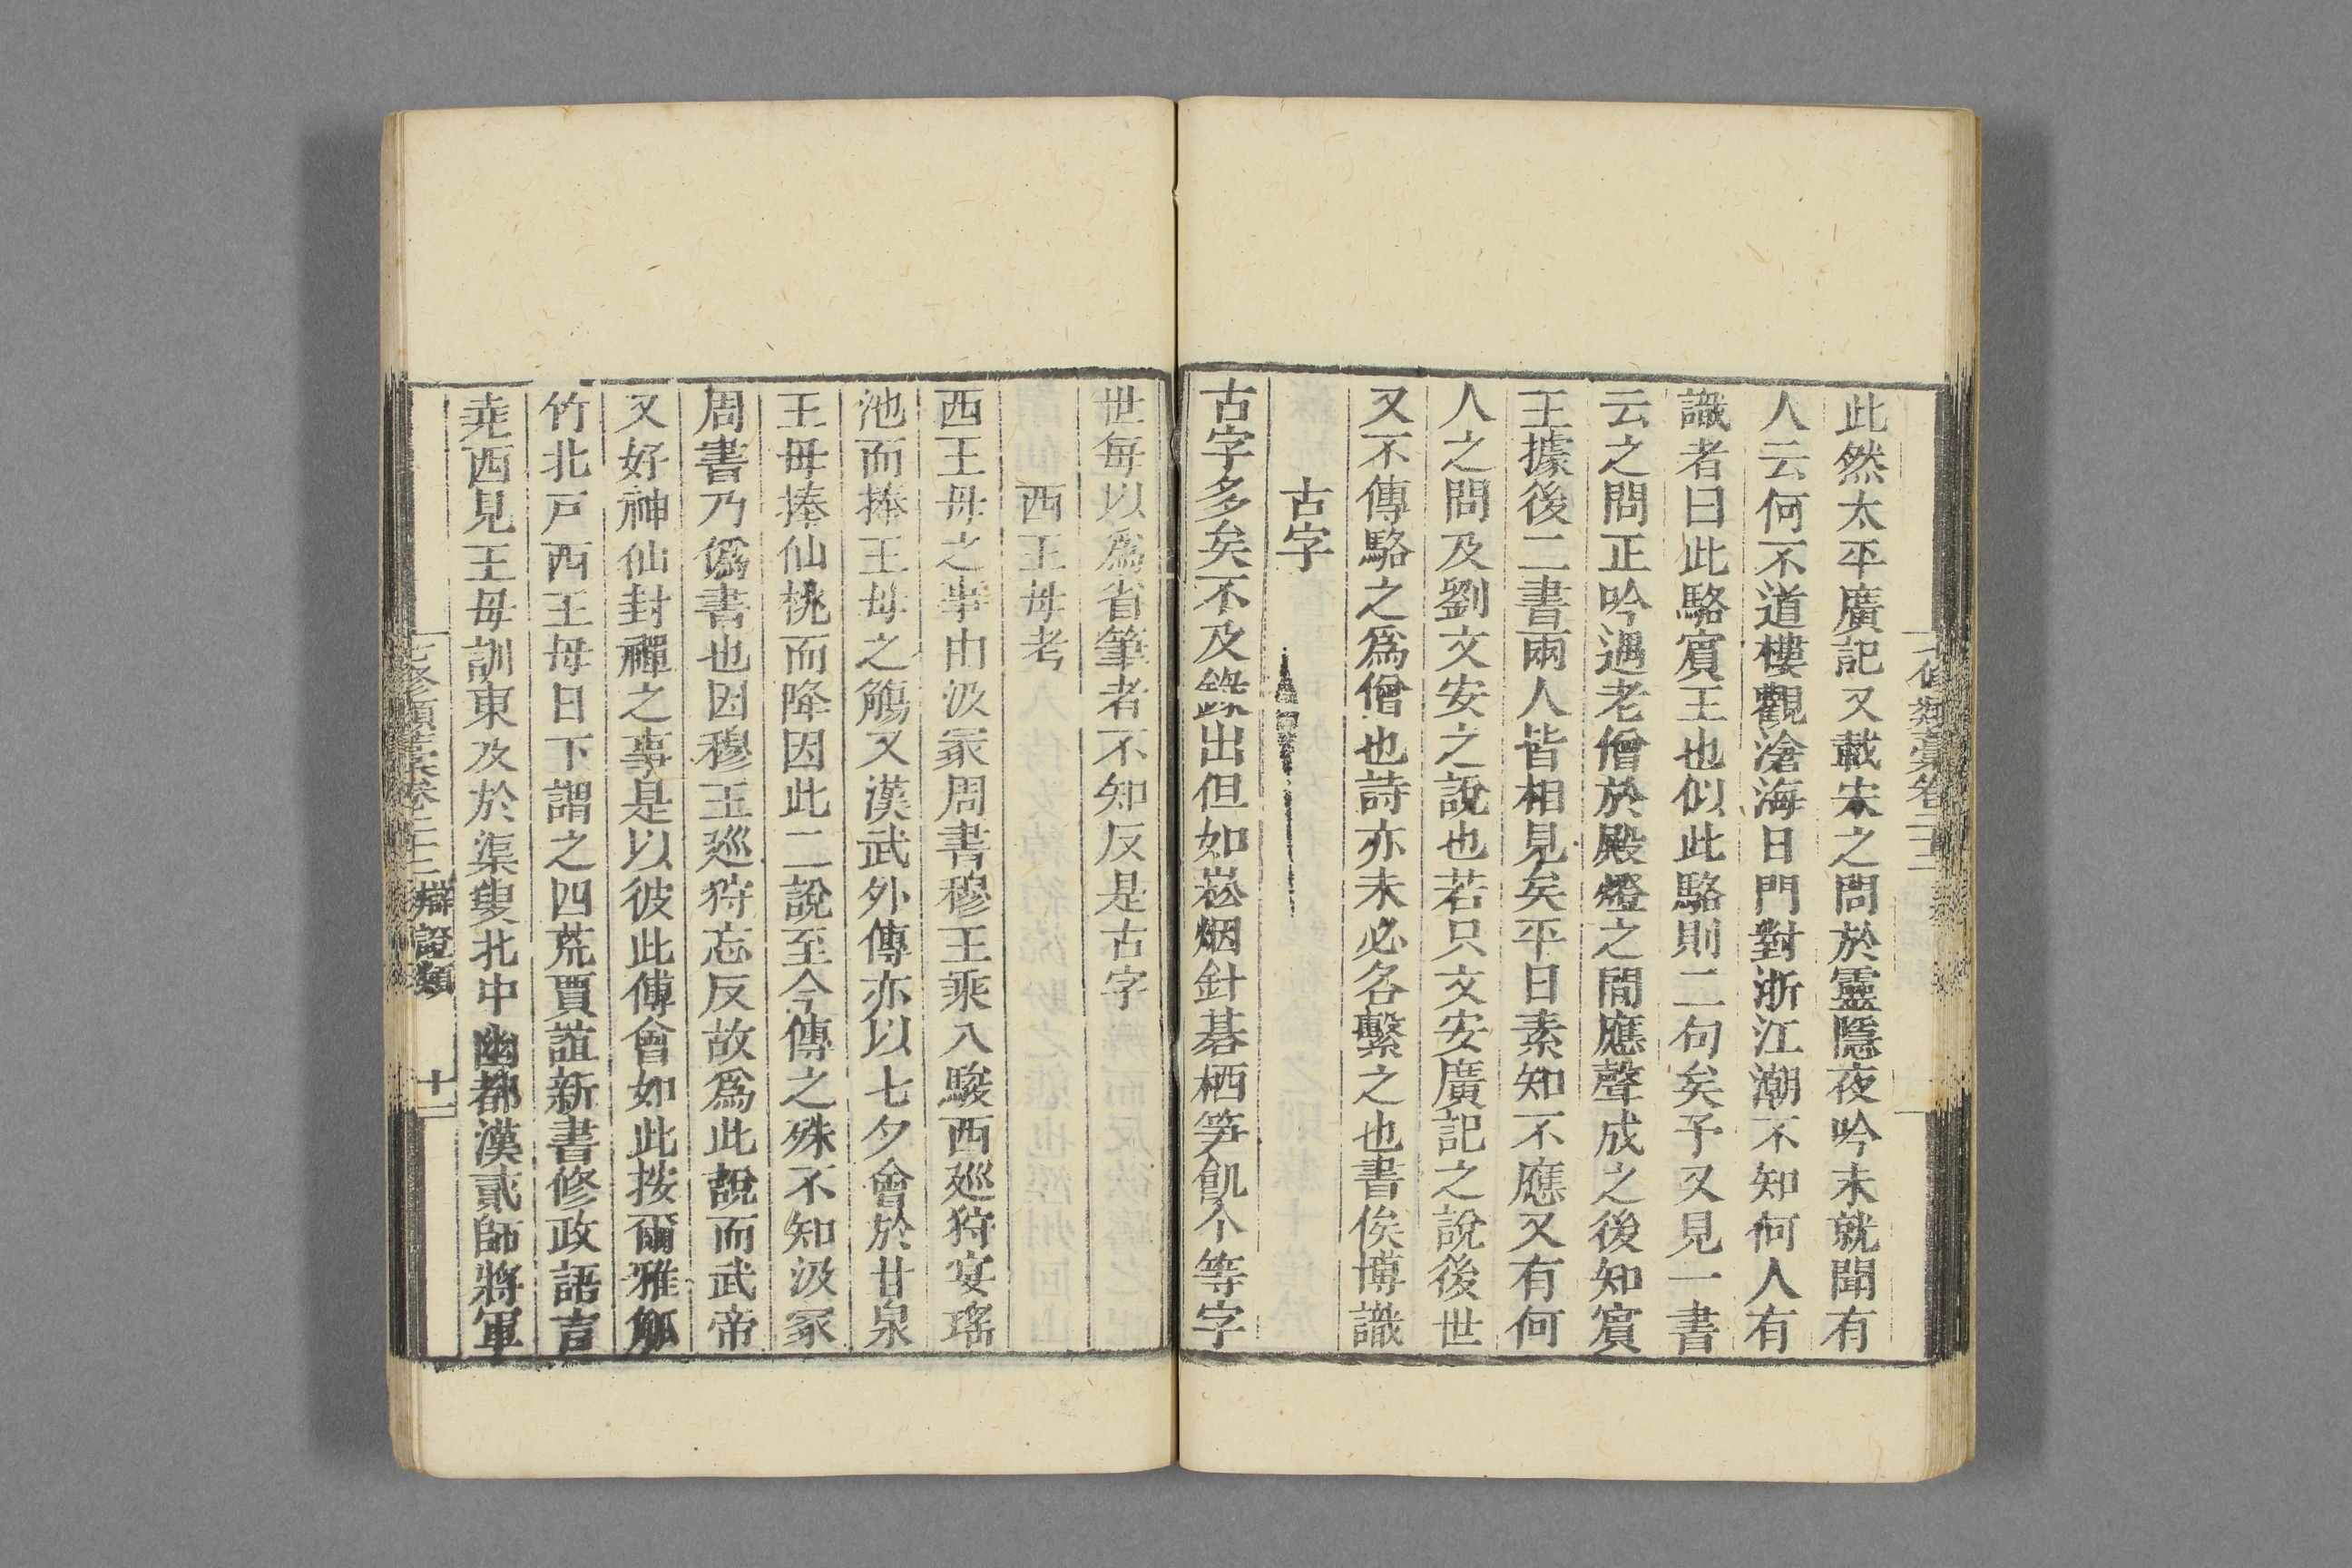 此然太平廣記又載宋之問於靈隱夜吟未就聞有
人云何不道樓觀滄海日門對浙江潮不知何人有
識者曰此駱賓王也似此駱則二句矣予又見一書
云之問正吟遇老僧於殿燈之間應聲成之後知賓
王據後二書兩人皆相見矣平日素知不應又有何
人之問及劉文安之說也若只文安廣記之說後世
又不傳駱之爲僧也詩亦未必名繫之也書俟博識
古字
古字多矣不及錄出但如崧烟針碁栖笋飢个等字
世每以爲省筆者不知反是古字
西王母考
西王母之事由汲冢周書穆王乘八駿西廵狩宴瑤
池而捧王母之觴又漢武外傳亦以七夕會於甘泉
王母捧仙桃而降因此二說至今傳之殊不知汲冢
周書乃僞書也因穆王廵狩忘反故爲此說而武帝
又好神仙封禪之事是以彼此傅會如此按爾雅觚
竹北戸西王母日下謂之四荒賈誼新書修政語言
尭西見王母訓東及於渠叟北中幽都漢貳師將軍
七修類藁卷二十二 辯證類 十一